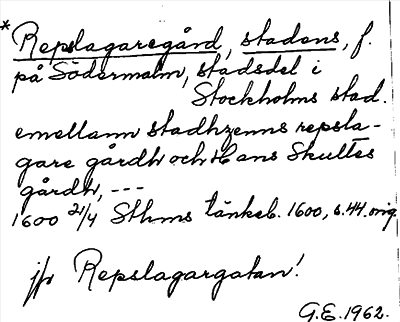 * Repslagaregård, stadens, f.
på Södermalm, stadsdel i
Stockholms stad.
emellann stadhzenns repsla-
gare gårdh och Hans Skultes
gårdh, ---
1600 21/4 Sthms tänkeb. 1600, s. 44. orig.
jfr Repslagargatan!
G.E. 1962.